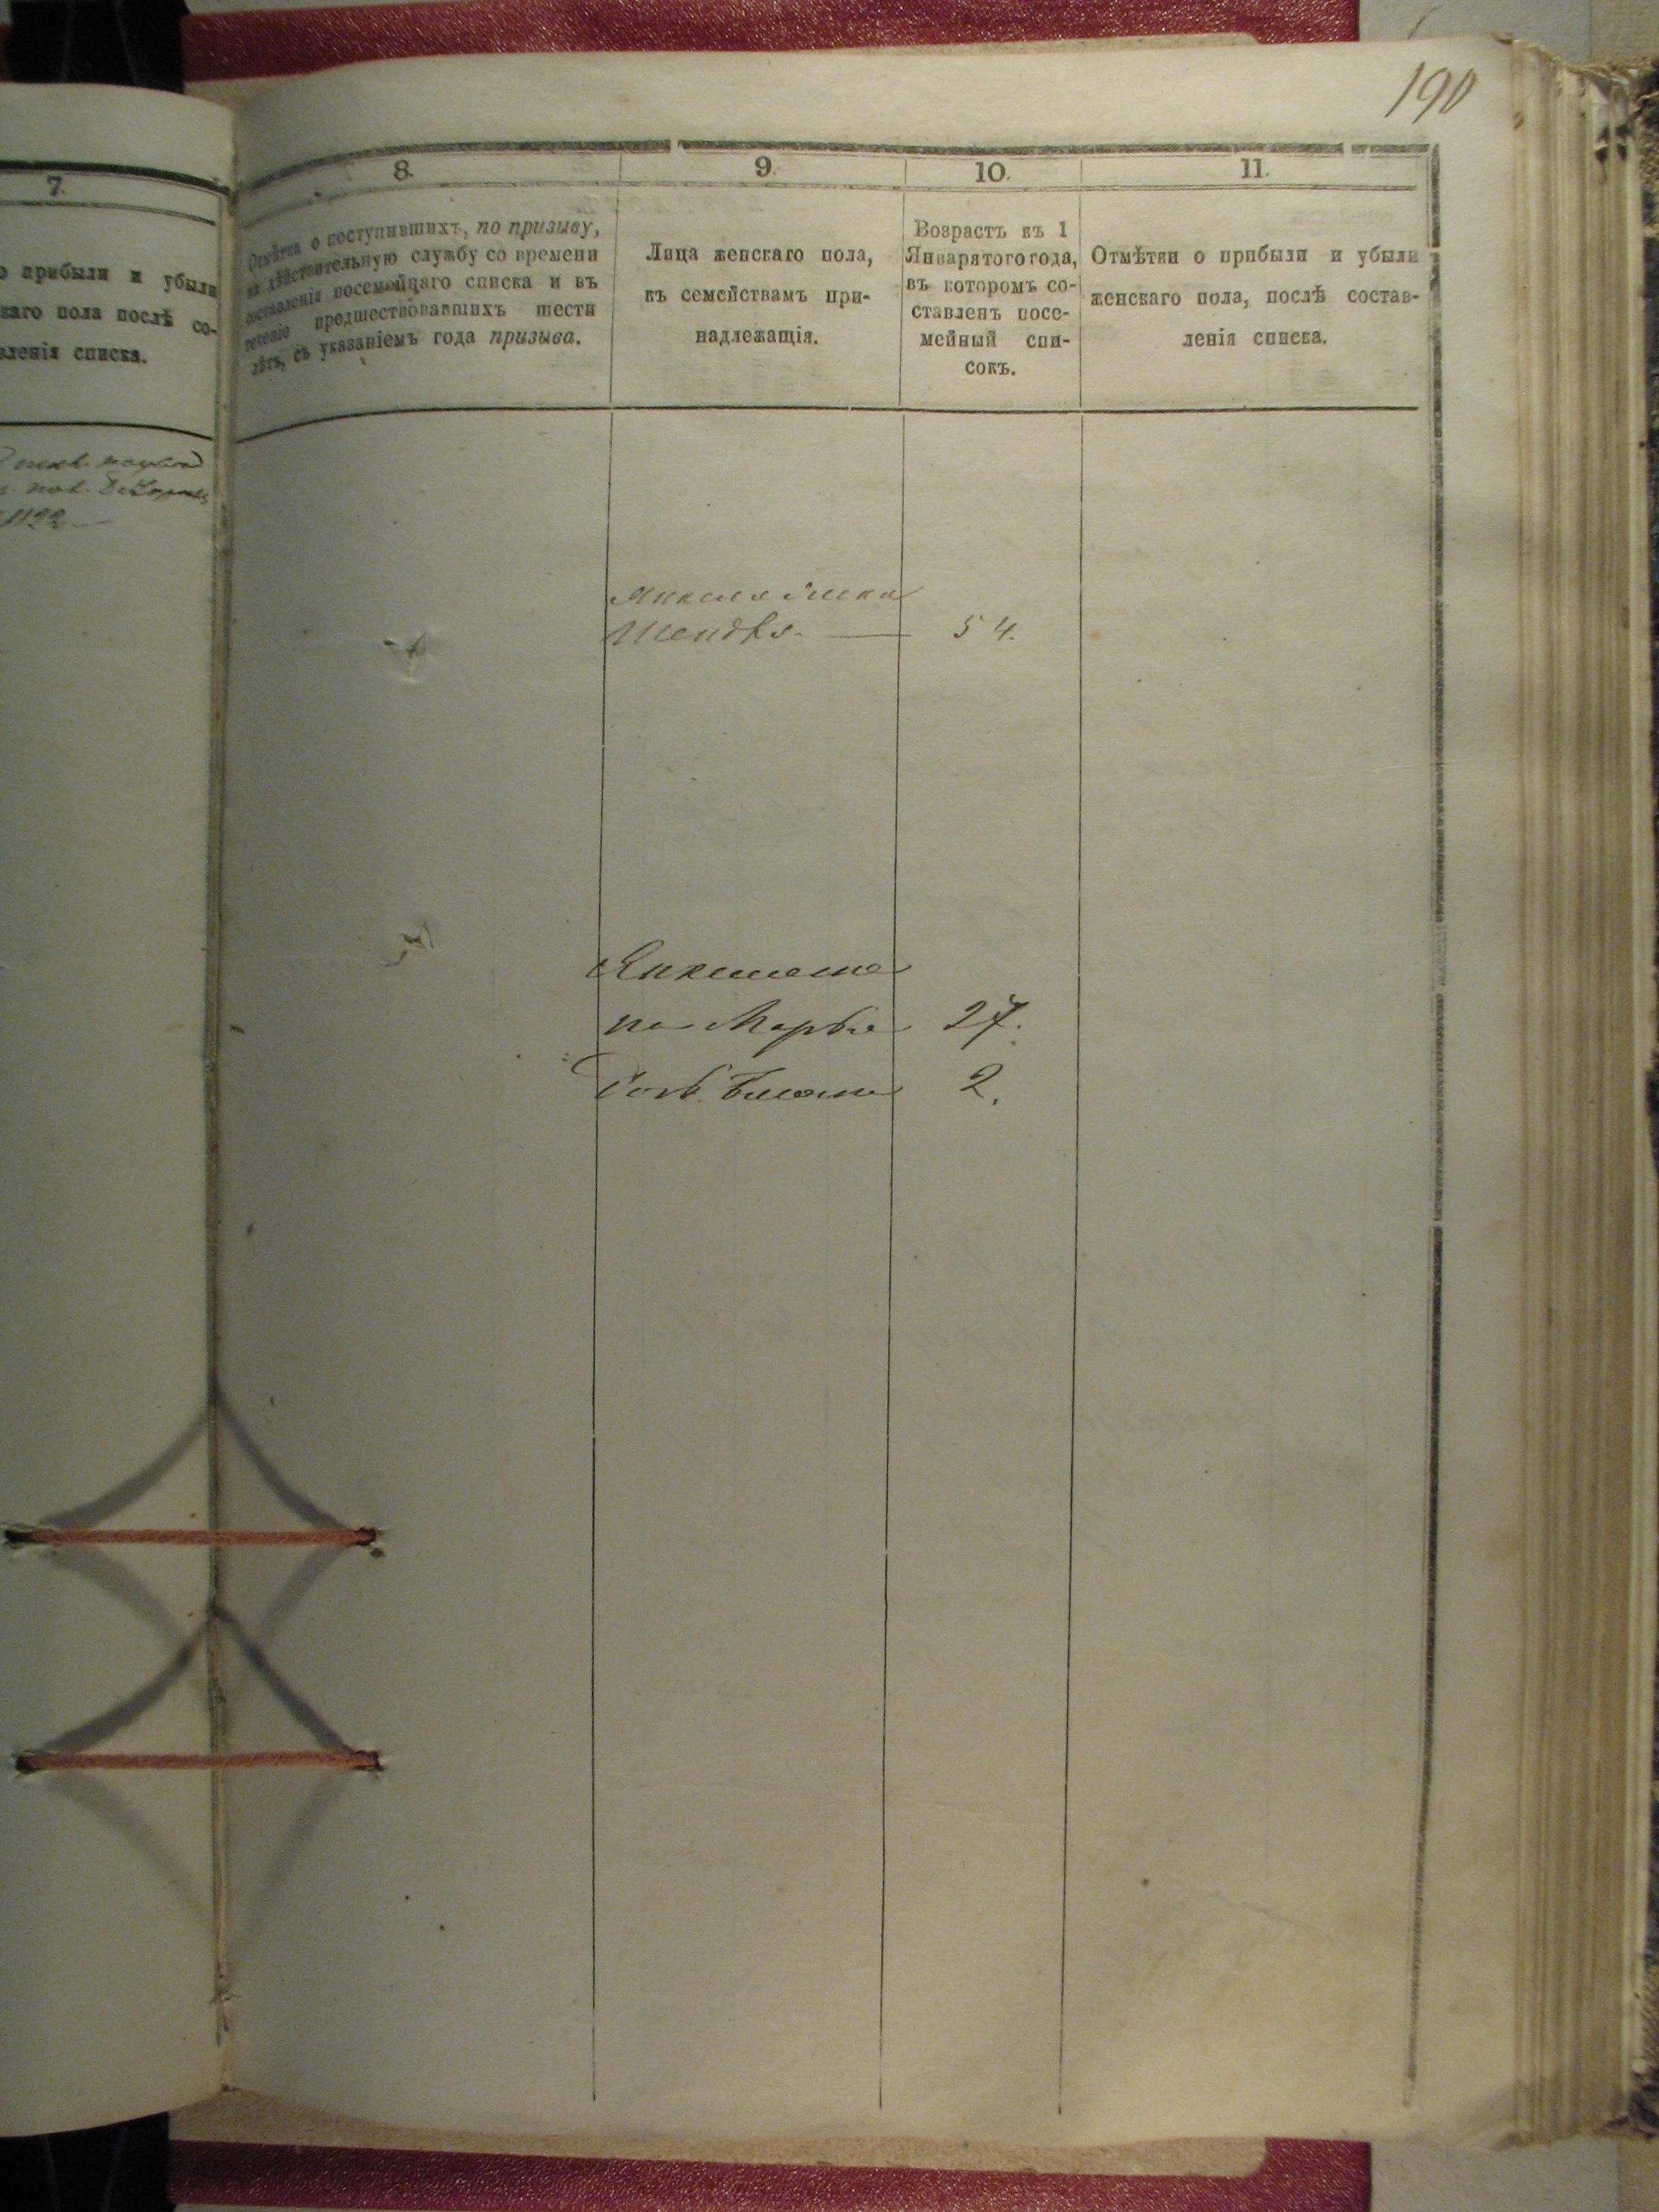 190
7.
о прибыли и убыли
скаго пола послѣ со-
вленія списка.
1122
8.
Отмѣтка о поступившихъ, по призыву,
на дѣйствительную службу со времени
составленія посемейнаго списка и въ
теченіе предшествовавшихъ шести
лѣтъ, съ указаніемъ года призыва.
9.
Лица женскаго пола,
къ семействамъ при-
надлежащія.
10.
Возрастъ къ 1
Января того года,
въ которомъ со-
ставленъ посе-
мейный спи-
сокъ.
11.
Отмѣтки о прибыли и убыли
женскаго пола, послѣ состав-
ленія списка.
Шендля 54.
на Марья 27.
2.